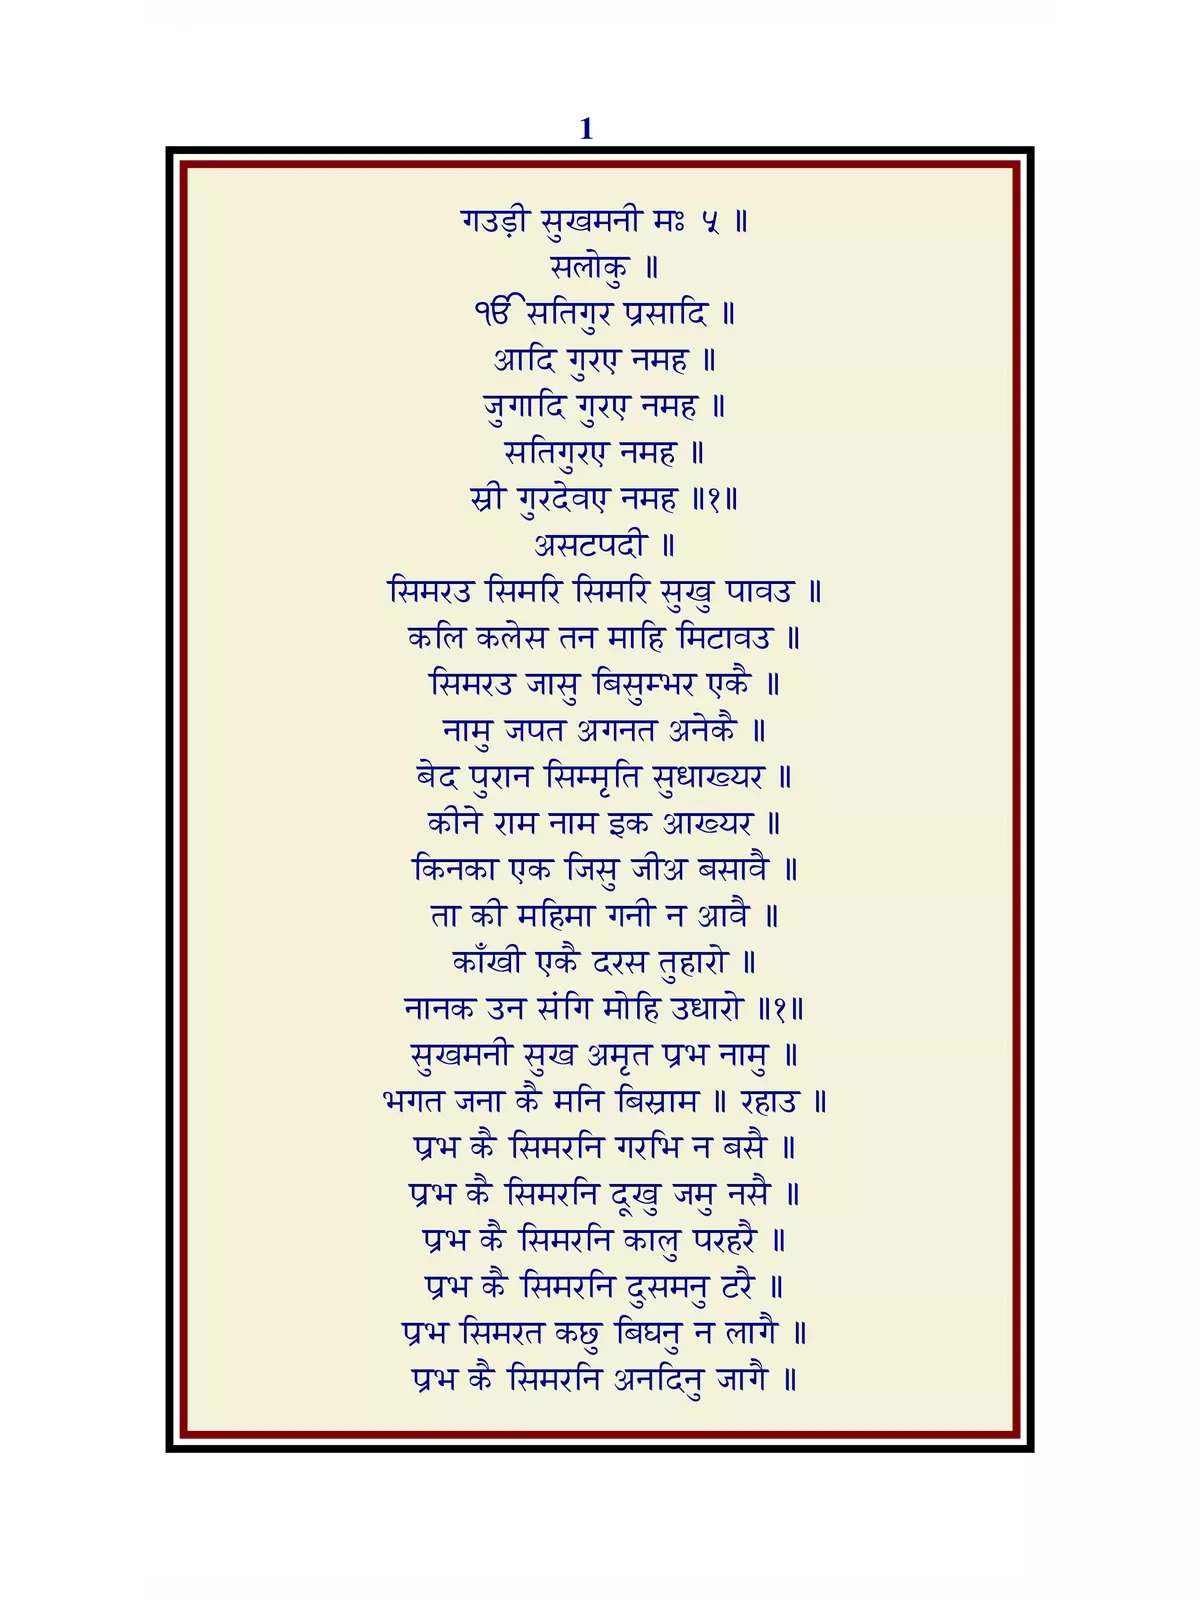 1
गउड़ी सुखमनी मः ५ ॥
सलोकु ॥
ੴ सतिगुर प्रसादि ॥
आदि गुरए नमह ॥
जुगादि गुरए नमह ॥
सतिगुरए नमह ॥
स्री गुरदेवए नमह ॥१॥
असटपदी ॥
सिमरउ सिमरि सिमरि सुखु पावउ ॥
कलि कलेस तन माहि मिटावउ ॥
सिमरउ जासु बिसुम्भर एकै ॥
नामु जपत अगनत अनेकै ॥
बेद पुरान सिम्मृति सुधाख्यर ॥
कीने राम नाम इक आख्यर ॥
किनका एक जिसु जीअ बसावै ॥
ता की महिमा गनी न आवै ॥
काँखी एकै दरस तुहारो ॥
नानक उन संगि मोहि उधारो ॥१॥
सुखमनी सुख अमृत प्रभ नामु ॥
भगत जना कै मनि बिस्राम ॥ रहाउ ॥
प्रभ कै सिमरनि गरभि न बसै ॥
प्रभ कै सिमरनि दूखु जमु नसै ॥
प्रभ कै सिमरनि कालु परहरै ॥
प्रभ कै सिमरनि दुसमनु टरै ॥
प्रभ सिमरत कछु बिघनु न लागै ॥
प्रभ कै सिमरनि अनदिनु जागै ॥